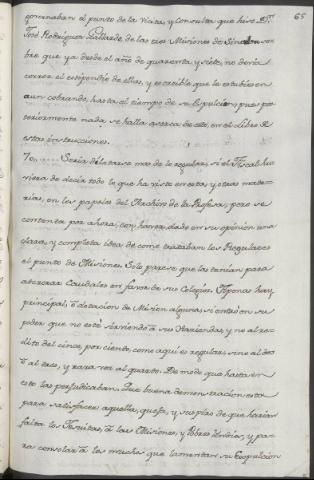 65
gencnaban el punto de la Visita, y Consulta que hizo Dn.
José Rodriguez Gallardo de las cien Misiones de Sinaloa so-
bre que ya desde el año de quarenta, y siete, no devia
correr el estipendio de ellas, y es creible que le estubiesen
aun cobrando, hasta el tiempo de su Expulcion, pues pos-
teriormente nada se halla acerca de esto, en el Libro de
estas instrucciones.
70. Seria dilatarse mas de lo regular, si el Fiscal hu-
viera de decir todo lo que ha visto en esta, y otras mate-
rias, en los papeles del Archivo de la Profesa; pero se
contenta por ahora, con haver dado en su opinion una
clara, y completa idea de como trataban los Regulares
el punto de Misiones. Solo parece que las tenian para
atesorar Caudales en favor de sus Colegios. Apenas hay
principal, ó dotacion de Mision alguna, si entró en su
poder que no esté sirviendo á sus Haciendas, y no al re-
dito del cinco por ciento, como aqui es regular, sino al dos
ó al tres, y rara vez al quarto. De modo que hasta en
esto las perjudicaban. Que buena demonstracion esta
para satisfacer aquella quexa, y suplas de que harian
falta los Jesuitas, á las Misiones, y Pobres Yndios, y pa-
ra consolar á los muchos que lamentan su Expulcion